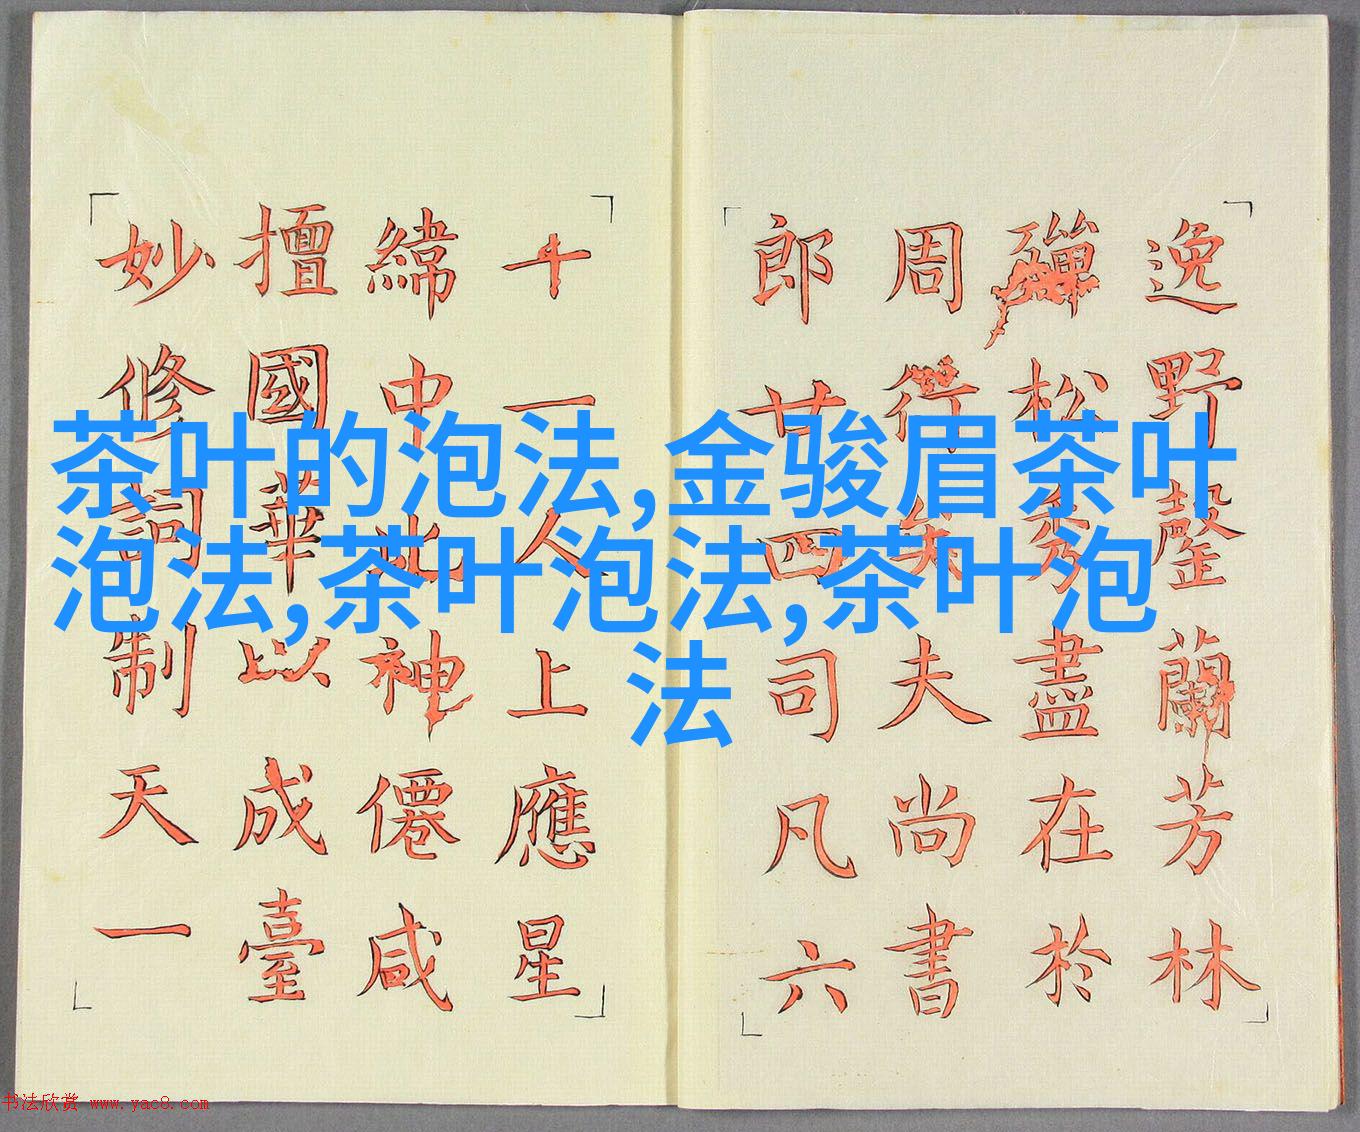 茶叶的泡法,金骏眉茶叶
泡法,茶叶泡法,茶叶泡
法
逸野罄蘭芳林
殫松秀盡在於
周行矣夫尚書
郎廿四司凡六
十一人上應星
緯中比神僊咸
擅國華以成臺
妙修詞制天一
书法欣赏 www.yac8.com